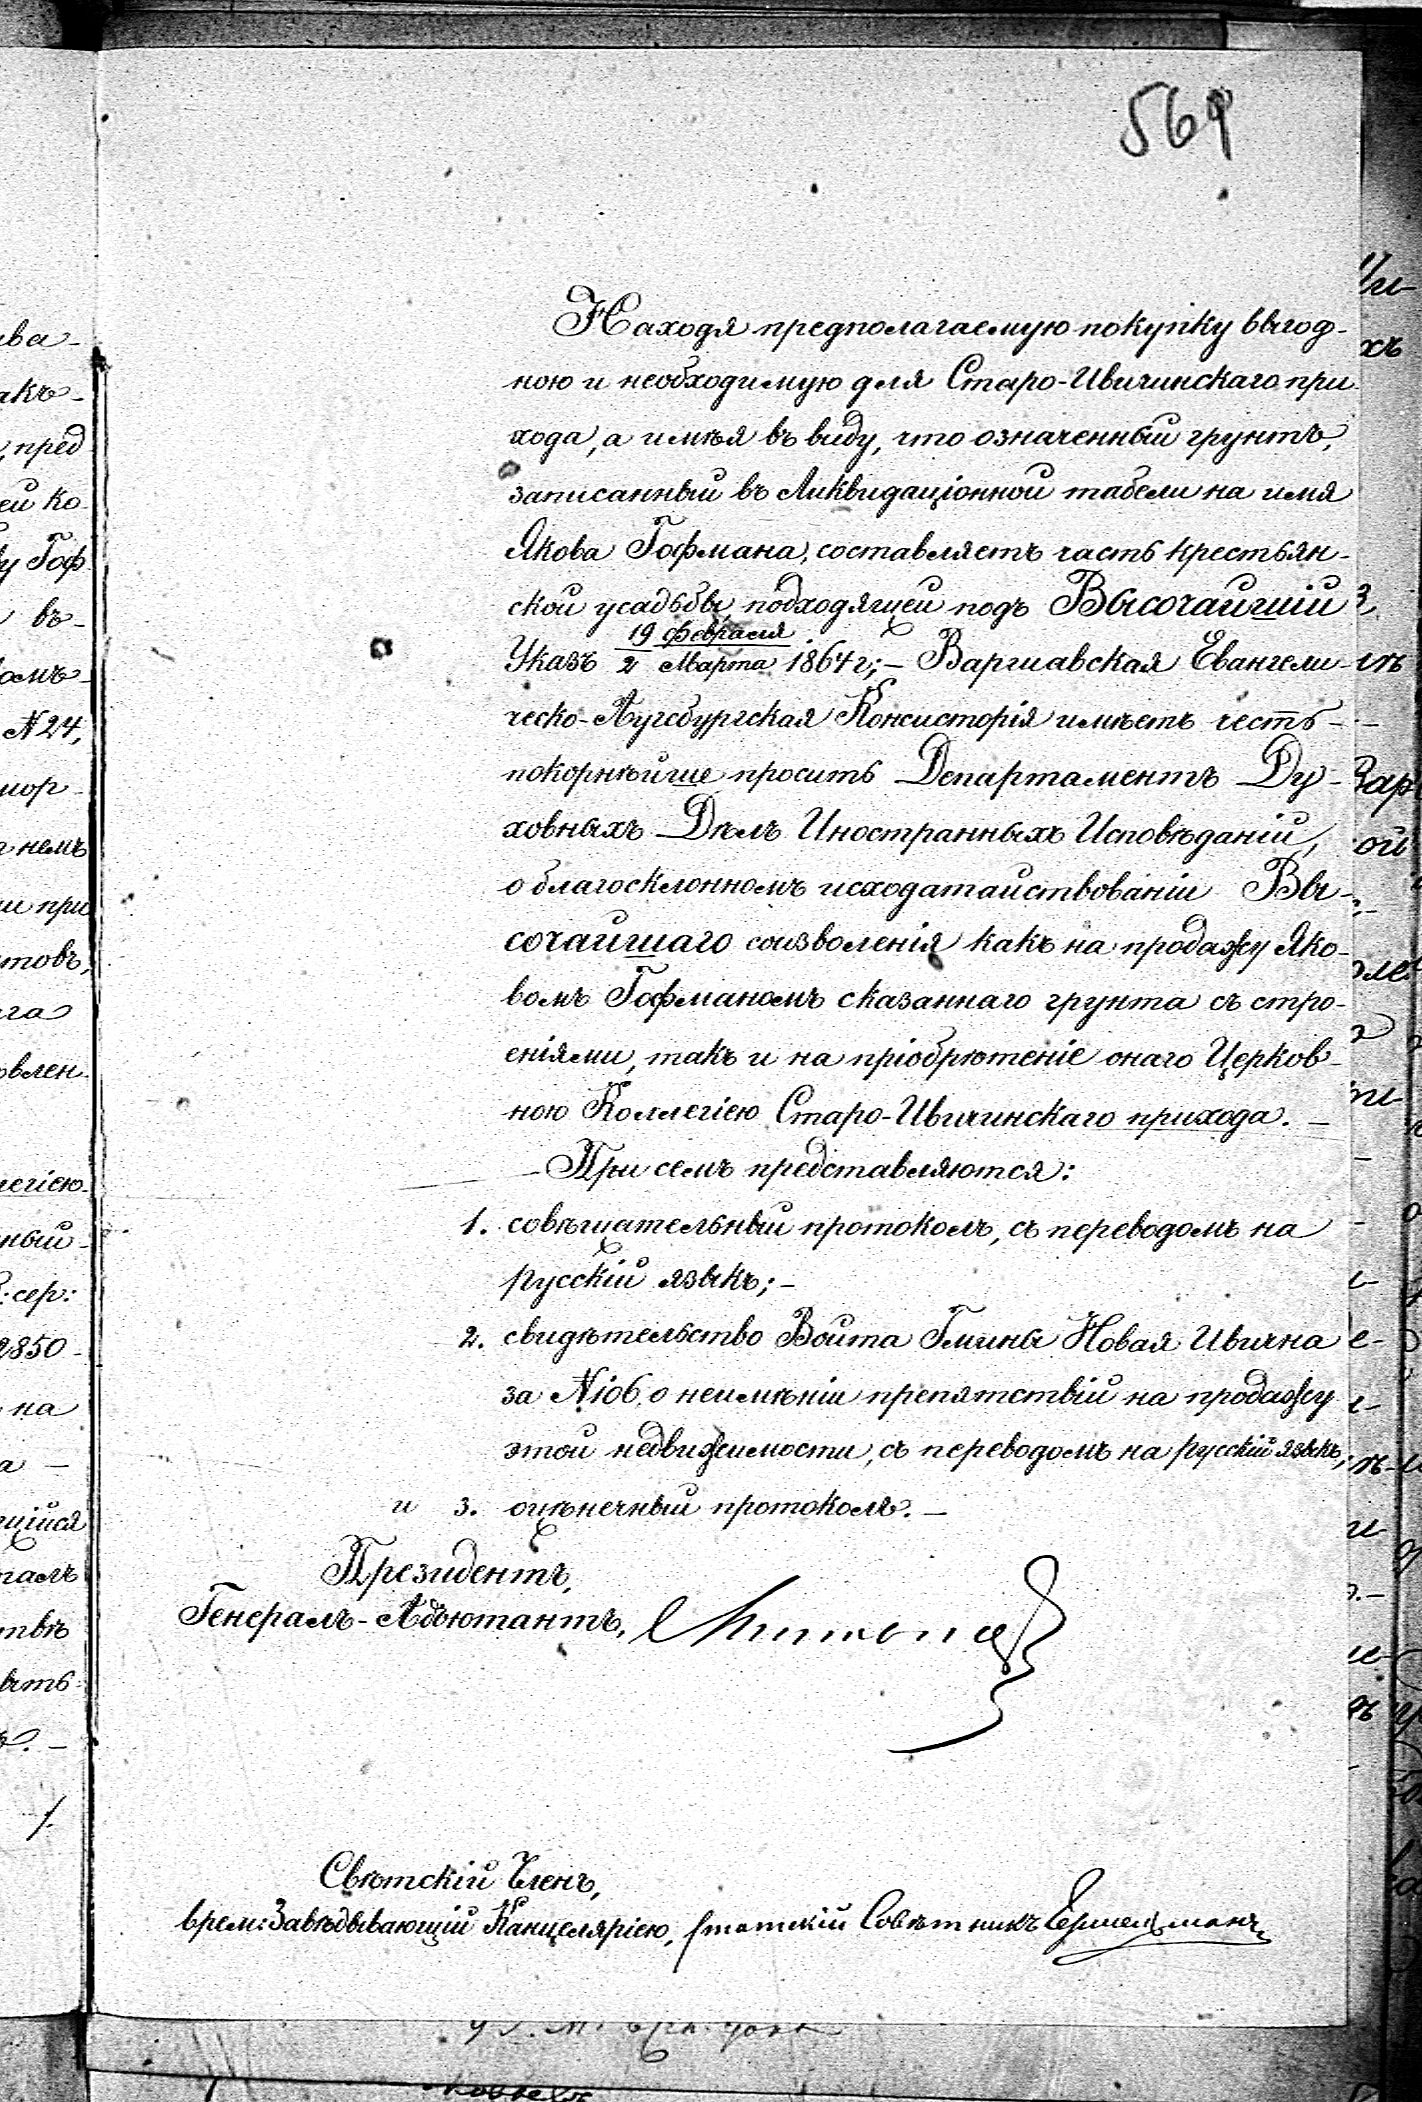 569
Находя предполагаемую покупку выгод-
ною и необходимую для Старо-Ивичинскаго при
хода, а имѣя въ виду, что означенный грунтъ,
записанный въ Ликвидаціонной табели на имя
Якова Гофмана, составляетъ часть крестьян-
ской усадьбы, подходящей подъ Высочайшій
19 Февраля
Указъ 2 Марта 1864 г; — Варшавская Евангели-
ческо-Аугсбургская Консисторія имѣетъ честь —
покорнѣйше просить Департаментъ Ду-
ховныхъ Дѣлъ Иностранныхъ Исповѣданій,
о благосклонномъ исходатайствованіи Вы-
сочайшаго соизволенія какъ на продажу Яко-
вомъ Гофманомъ сказаннаго грунта съ стро-
еніями, такъ и на пріобрѣтеніе онаго Церков-
ною Коллегіею Старо-Ивичинскаго прихода. —
— При семъ представляются:
1. совѣщательный протоколъ, съ переводомъ на
русскій языкъ; —
2. свидѣтельство Войта Гмины Новая Ивична
за N 106, о неимѣніи препятствій на продажу
этой недвижимости, съ переводомъ на русскій языкъ,
и 3. оцѣнечный протоколъ. —
Президентъ,
Генералъ-Адъютантъ,
Свѣтскій Членъ,
врем: Завѣдывающій Канцеляріею, Статскій Совѣтникъ